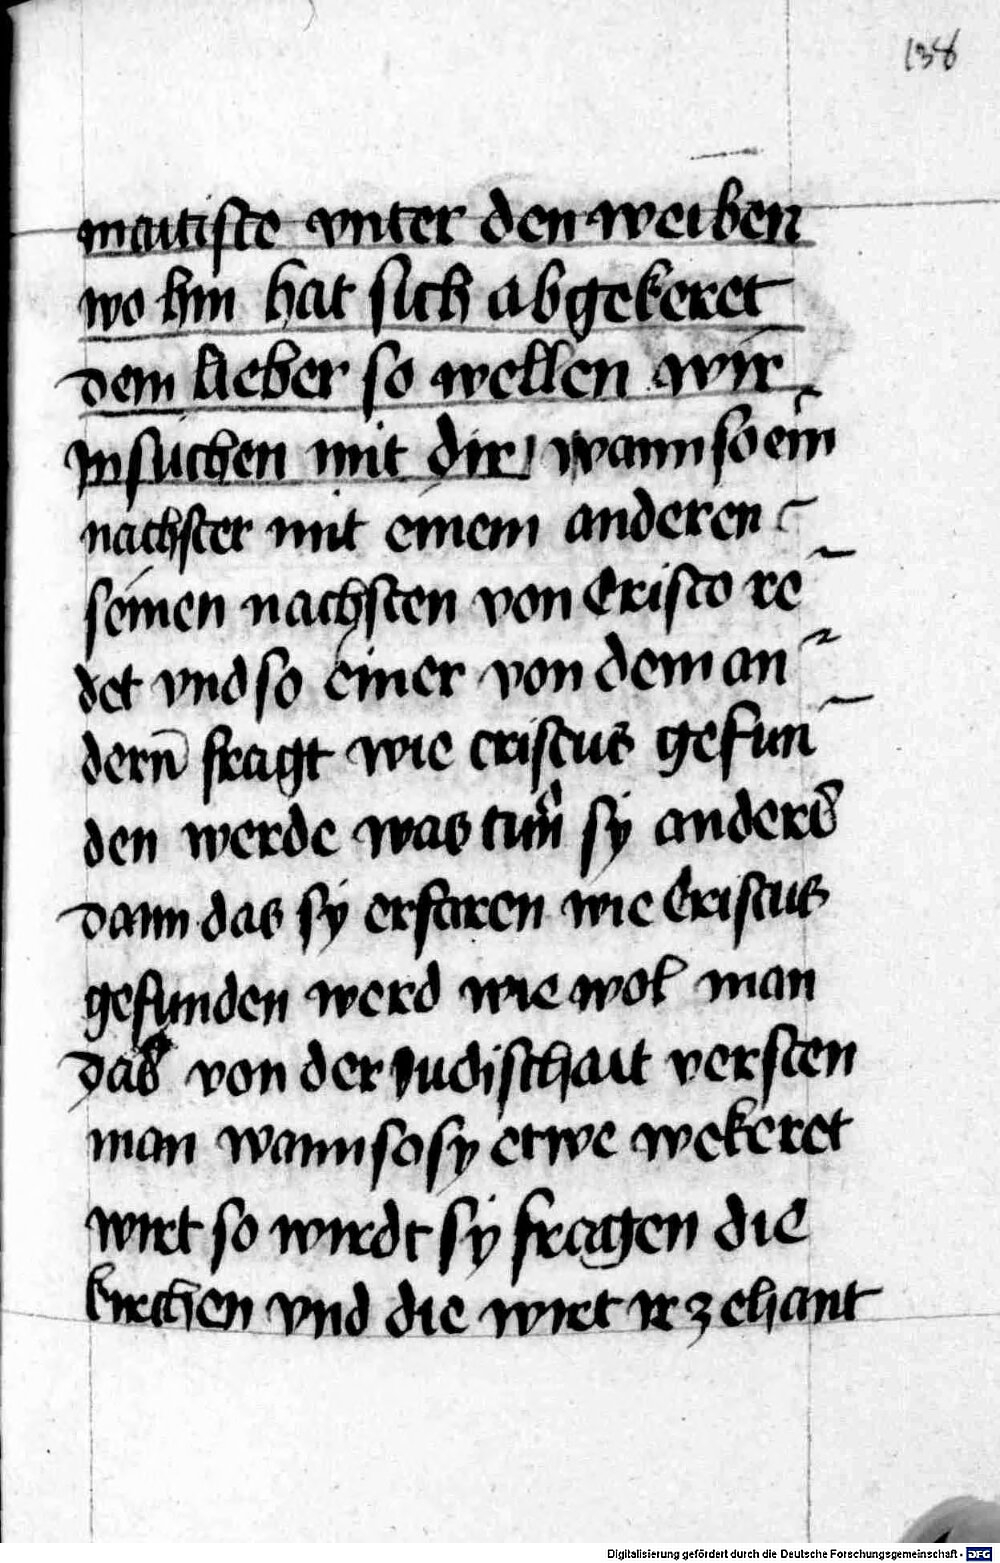 138
maitiste vnter den weiben
wo hin hat sich abgekeret
dem lieber so wellen wir
Jn suchen mit dir / wann so ein
nachster mit einem anderen
seinen nachsten von Cristo re
det vnd so einer von dem an
dern̄ fragt wie cristus gefun
den werde was tun sy anders
dann das sy erfaren wie Cristus
gefunden werd wie wol man
das von der Judischait versten
man wann so sy etwe wekeret
wirt so wirdt sy fragen die
kirchen vnd die wirt ir zehant
Digitalisierung gefördert durch die Deutsche Forschungsgemeinschaft - DFG